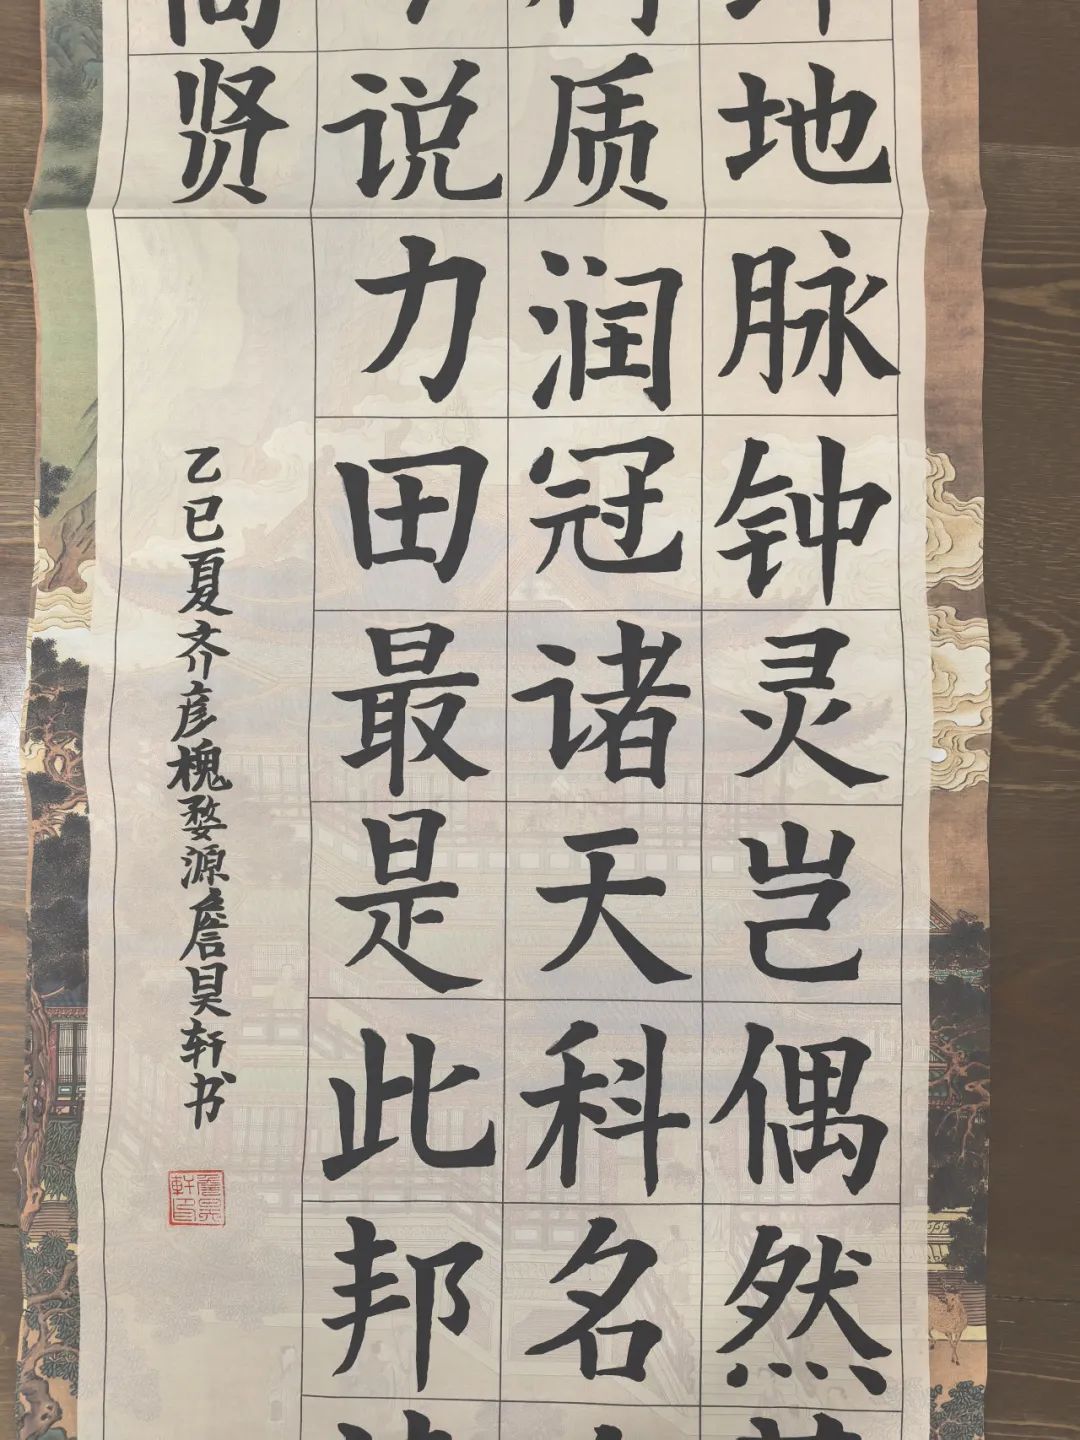 地脉钟灵岂偶然
质润冠诸天科名
说力田最是此邦
贤
乙巳夏齐彦槐婺源詹昊轩书
詹昊轩印